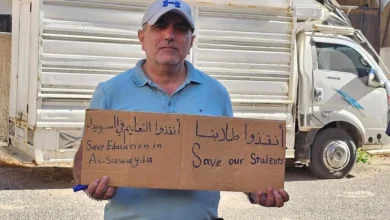 أنقذوا طلابنا
Save our Students
أنقذوا التعليم في السويداء
Save Education in
As.Suwayda